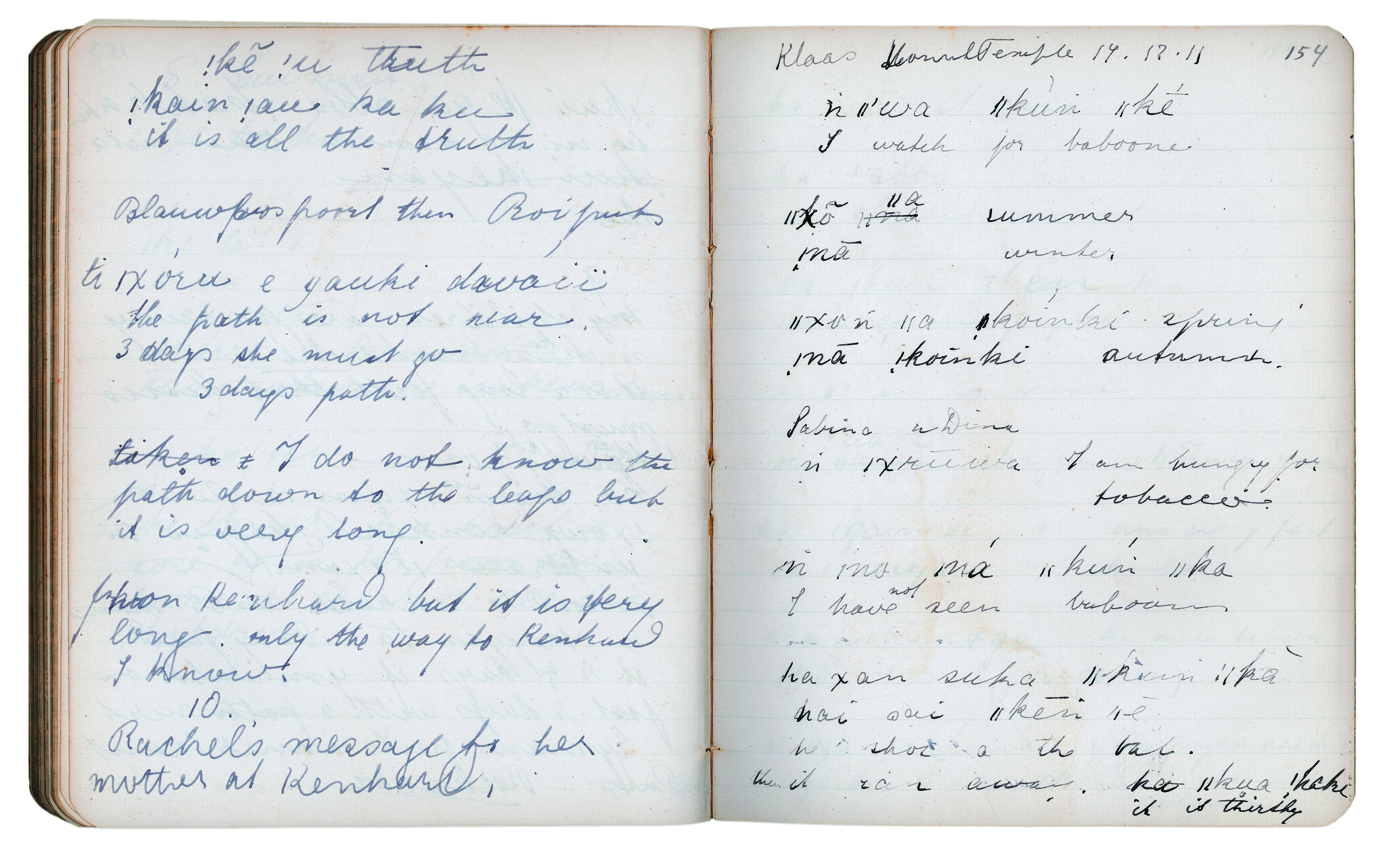 !kẽ !u truth
!kain !au ka ku
it is all the truth
then Roiputs
ti ǀxóru e gauki davaïï
the path is not near.
3 days she must go
3 days path.
taken I do not know the
path down to the but
it is very long.
from Kenhard but it is very
long. only the way to Kenhard
I know.
10.
Rachel's message to her
mother at Kenhard,
Klaas Temple 14.12.11 154
ń ǁ'wa ǁkúń ǁkē
I watch for baboons
ǁxõ ǁa summer
!nā winter.
ǁxoń ǁa !koińki spring
!nā !koińki autumn.
Sabina u Dina
ń ǀxrūwa I am hungry for
tobacco.
ń ǀno ná ǁkúń ǁka
I have not seen baboons
ha xan suka ǁkuń ǁkā
hai sai ǁkēń ǁē
he shot a the
then it ran away. ka ǁkua !kake
it is thirsty